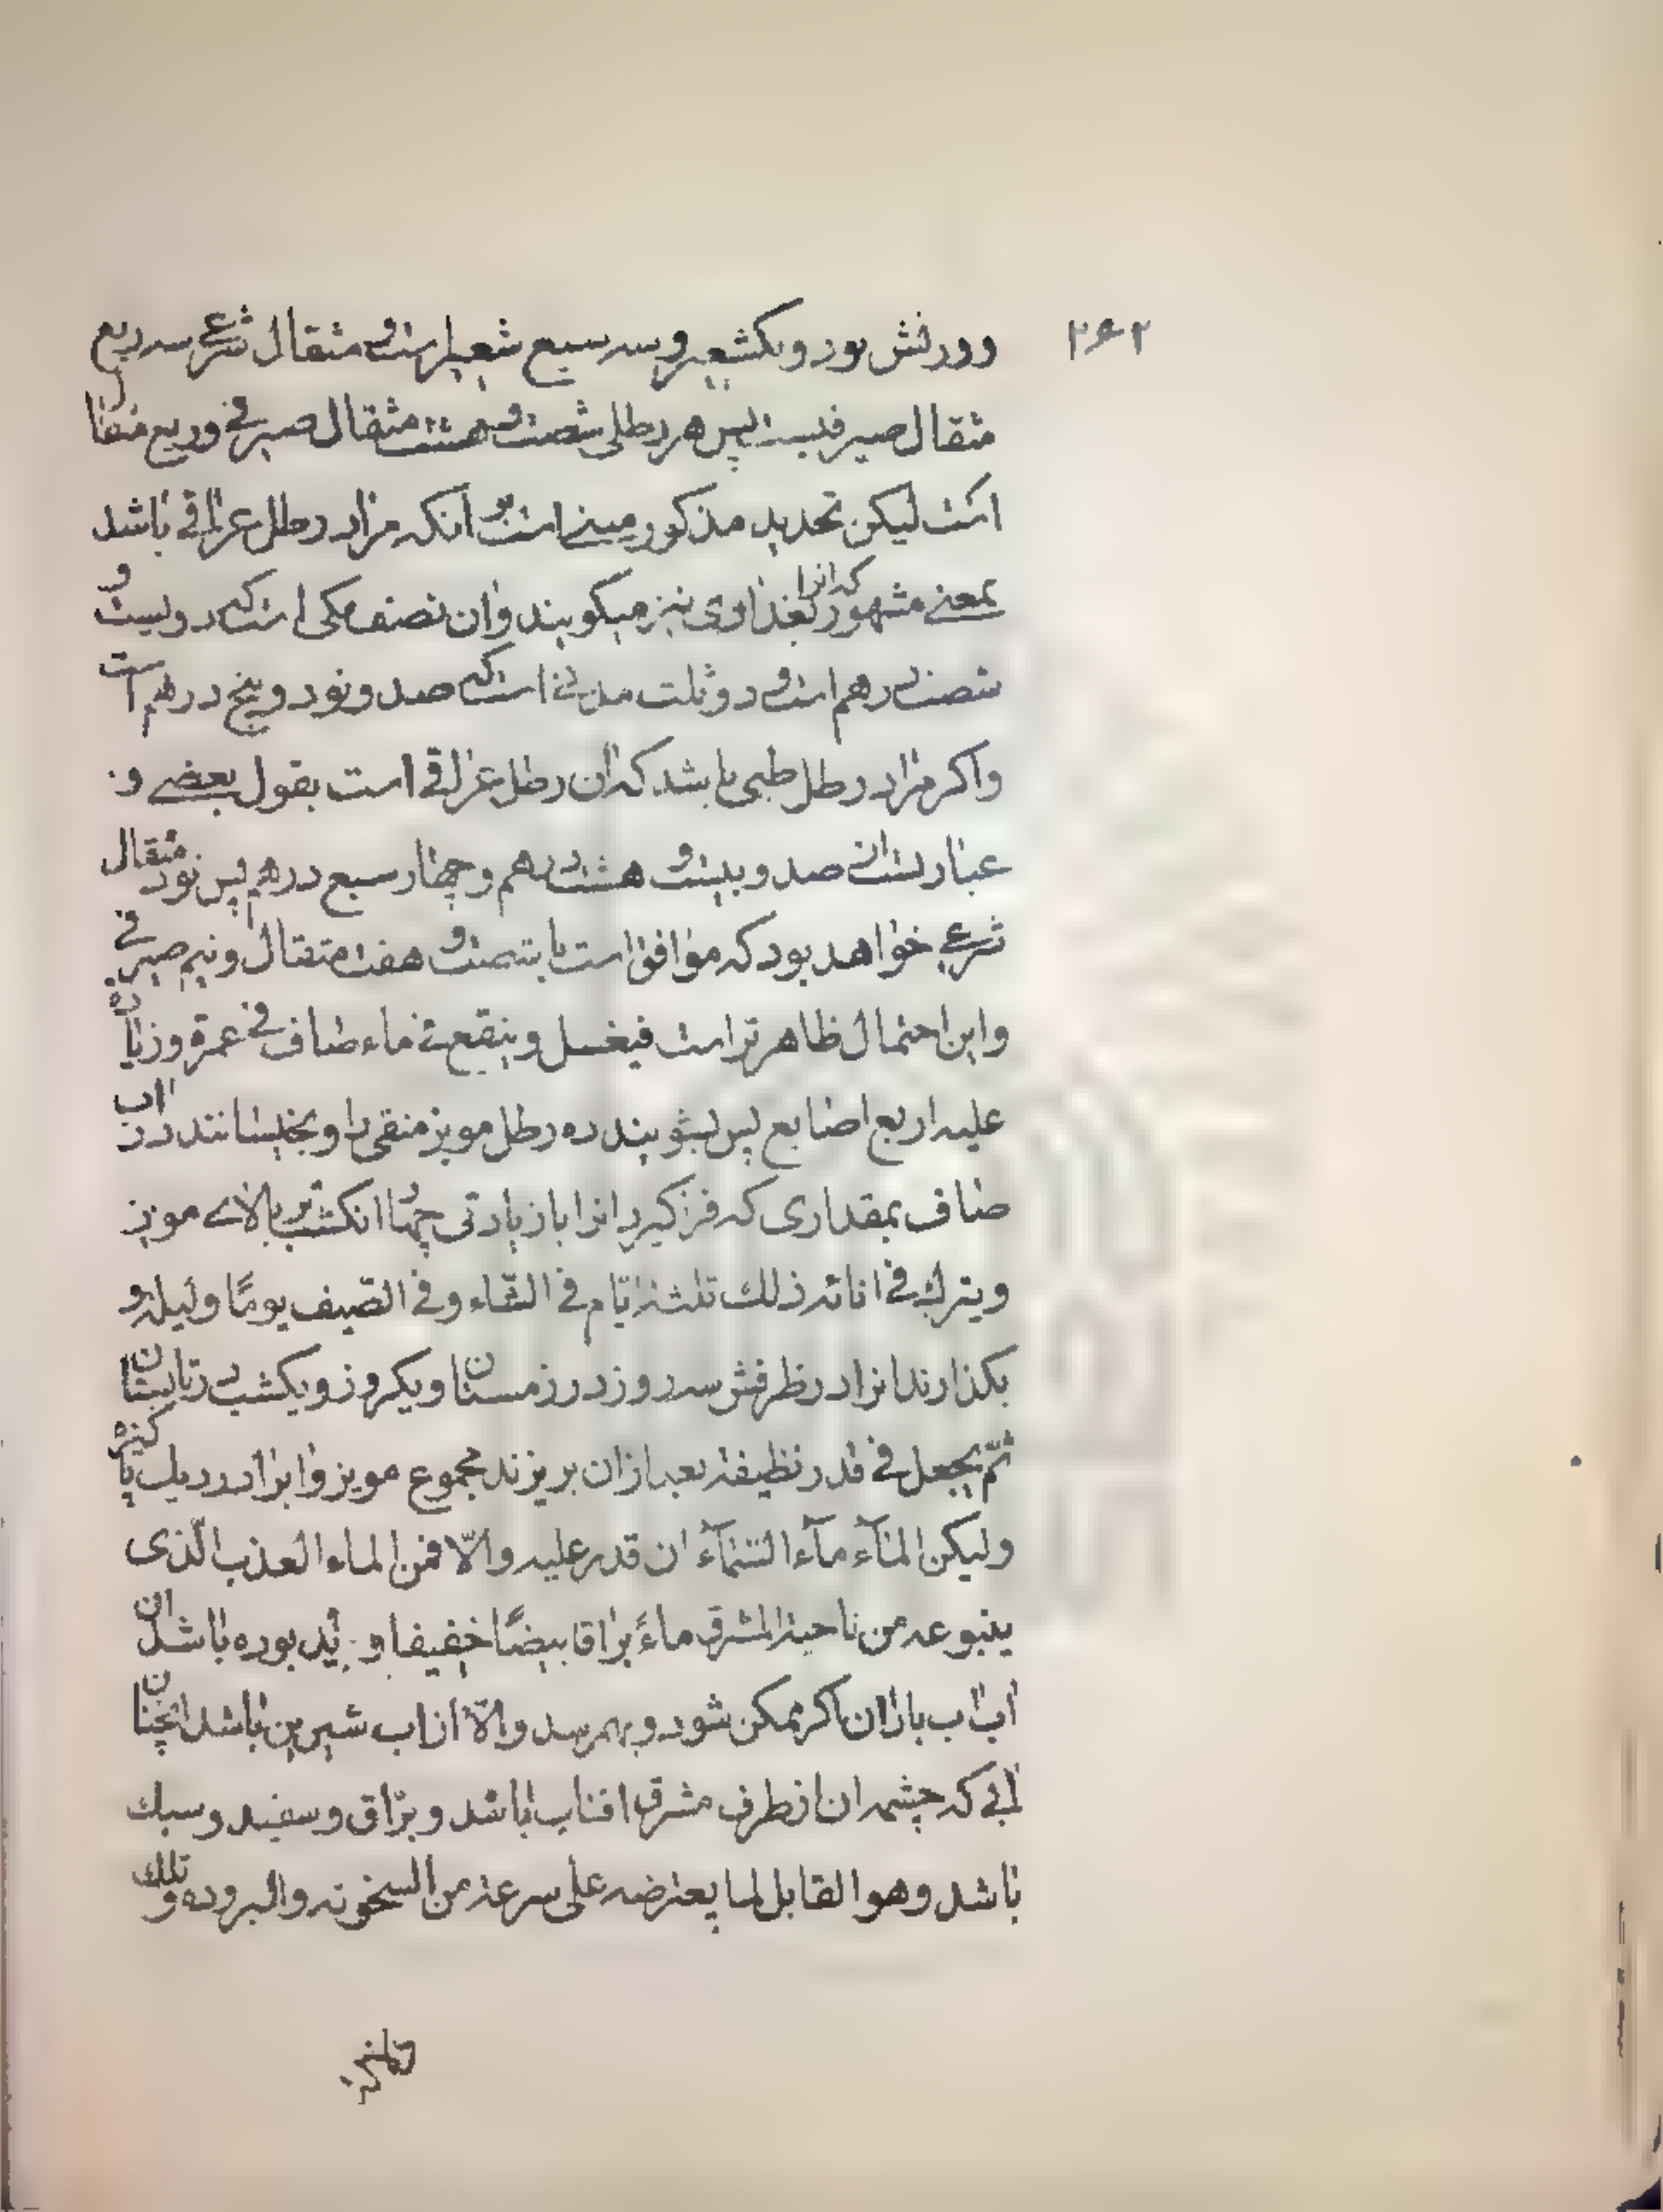 ۲۶۲
وورنش نود ویکشعیر وسه سبع شعیر است و مثقال شرعی سه ربع
مثقال صیرفیست پس هر رطلی شصت و هشت مثقال صیرفی وربع مثقال
است لیکن تحدید مذکور مبنی است بر آنکه مراد رطل عراقی باشد
بمعنی مشهور که انرا بغدادی نیز میکویند وان نصف مکی است که دویست و
شصت درهم است و دو ثلث مدنی است که صد و نود و پنج درهم است
واکر مراد رطل طبی باشد که ان رطل عراقی است بقول بعضی و
عبارتست از صد و بیست و هشت درهم و چهار سبع درهم پس نود مثقال
شرعی خواهد بود که موافق است با شصت و هفت مثقال و نیم صیرفی
واین احتمال ظاهر تر است فیغسل وینقع فی ماء صاف فی غمرة وزیادة
علیه اربع اصابع پس بشویند ده رطل مویز منقی را و بخیسانند در اب
صاف بمقداری که فرا کیرد انرا با زیادتی چهار انکشت بر بالای مویز
ویترك فی انائه ذلك ثلثة ایام فی الشتاء وفی الصیف یومًا ولیلة و
بکذارند انرا در ظرفش سه روز در زمستان ویکروز ویکشب در تابستان
ثمّ یجعل فی قدر نظیفة بعد از ان بریزند مجموع مویز واب را در دیك پاکیزه
ولیکن المآء مآء السّمآء ان قدر علیه والّا فمن الماء العذب الّذی
ینبوعه من ناحیة المشرق ماءً براقا بیضًا خفیفا و بوده باشد ان
آب اب باران اکر ممکن شود و بهم رسد والّا از اب شیرین باشد انچنان
ابی که چشمه ان از طرف مشرق افتاب باشد و برّاق و سفید و سبك
باشد وهو القابل لما یعترضه علی سرعة من السخونه والبروده و تلك